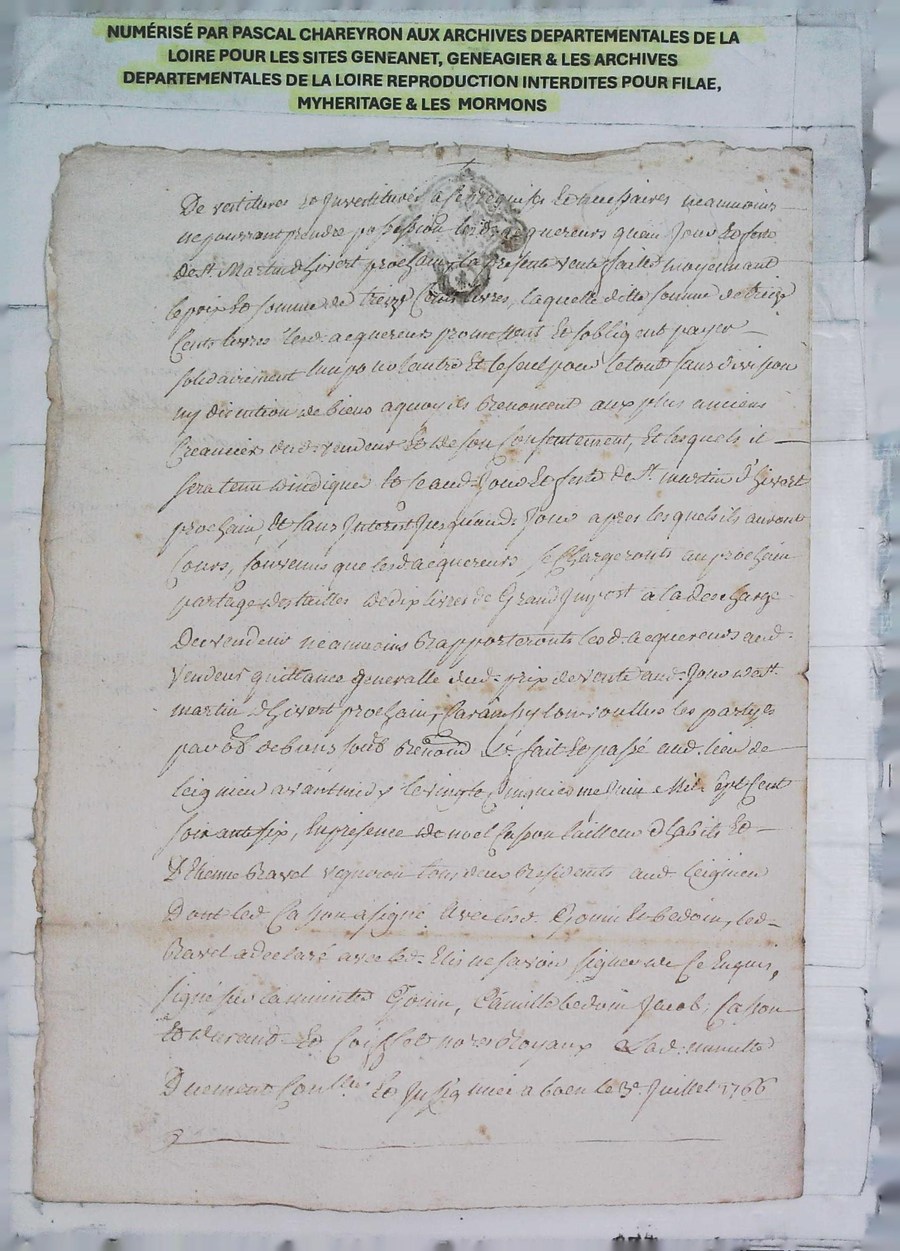 NUMÉRISÉ PAR PASCAL CHAREYRON AUX ARCHIVES DEPARTEMENTALES DE LA
LOIRE POUR LES SITES GENEANET, GENEAGIER & LES ARCHIVES
DEPARTEMENTALES DE LA LOIRE REPRODUCTION INTERDITES POUR FILAE,
MYHERITAGE & LES MORMONS
De vestitures et Investitures a ce requises et necessaires neanmoins
ne pourront prendre possession lesd. acquereurs quau Jour et feste
de St. Martin d'hivert prochain, la presente vente faitte moyennant
le prix et somme de treize Cents livres, laquelle ditte somme de treize
Cents livres lesd. acquereurs promettent et sobligent payer
solidairement lun pour lautre et le seul pour le tout sans division
ny discution de biens a quoy ils Renoncent aux plus anciens
Creanciers dud. vendeur et de son Consentement, et lesquels il
sera tenu dindiquer et le aud. Jour et feste de St. martin d'hivert
prochain, et sans Interest Jusquaud. Jour apres lesquels ils auront
Cours, Convenus que lesd. acquereurs se Chargeronts au prochain
partage des tailles de dix livres de Grand Impost a la descharge
du vendeur neamoins Rapporteronts lesd. acquereurs aud.
Vendeur quittance generalle dud. prix de vente aud. Jour de St.
martin d'hivert prochain, Car ainsy lon voullus les partyes
par obb. de biens soub. Renond. &c. fait et passé aud. lieu de
leignieu avant midy le vingt Cinquieme Juin Mil Sept Cent
soixante six, En presence de noel Casson tailleur d'habits et
d'Etienne Ravel vigneron tous deux Residents aud. leignieu
Dont led. Casson a signé avec lesd. Goüin et bedoin, led.
Ravel a declaré avec led. Elie ne savoir signer de Ce Enquis,
signé sur la minutte Goüin, Camille bedoin Jacob, Casson
et durand et Coiffet nores. Royaux Lad. minutte
Duement Conllée. et Insignuée a boen le 3e. Juillet 1766